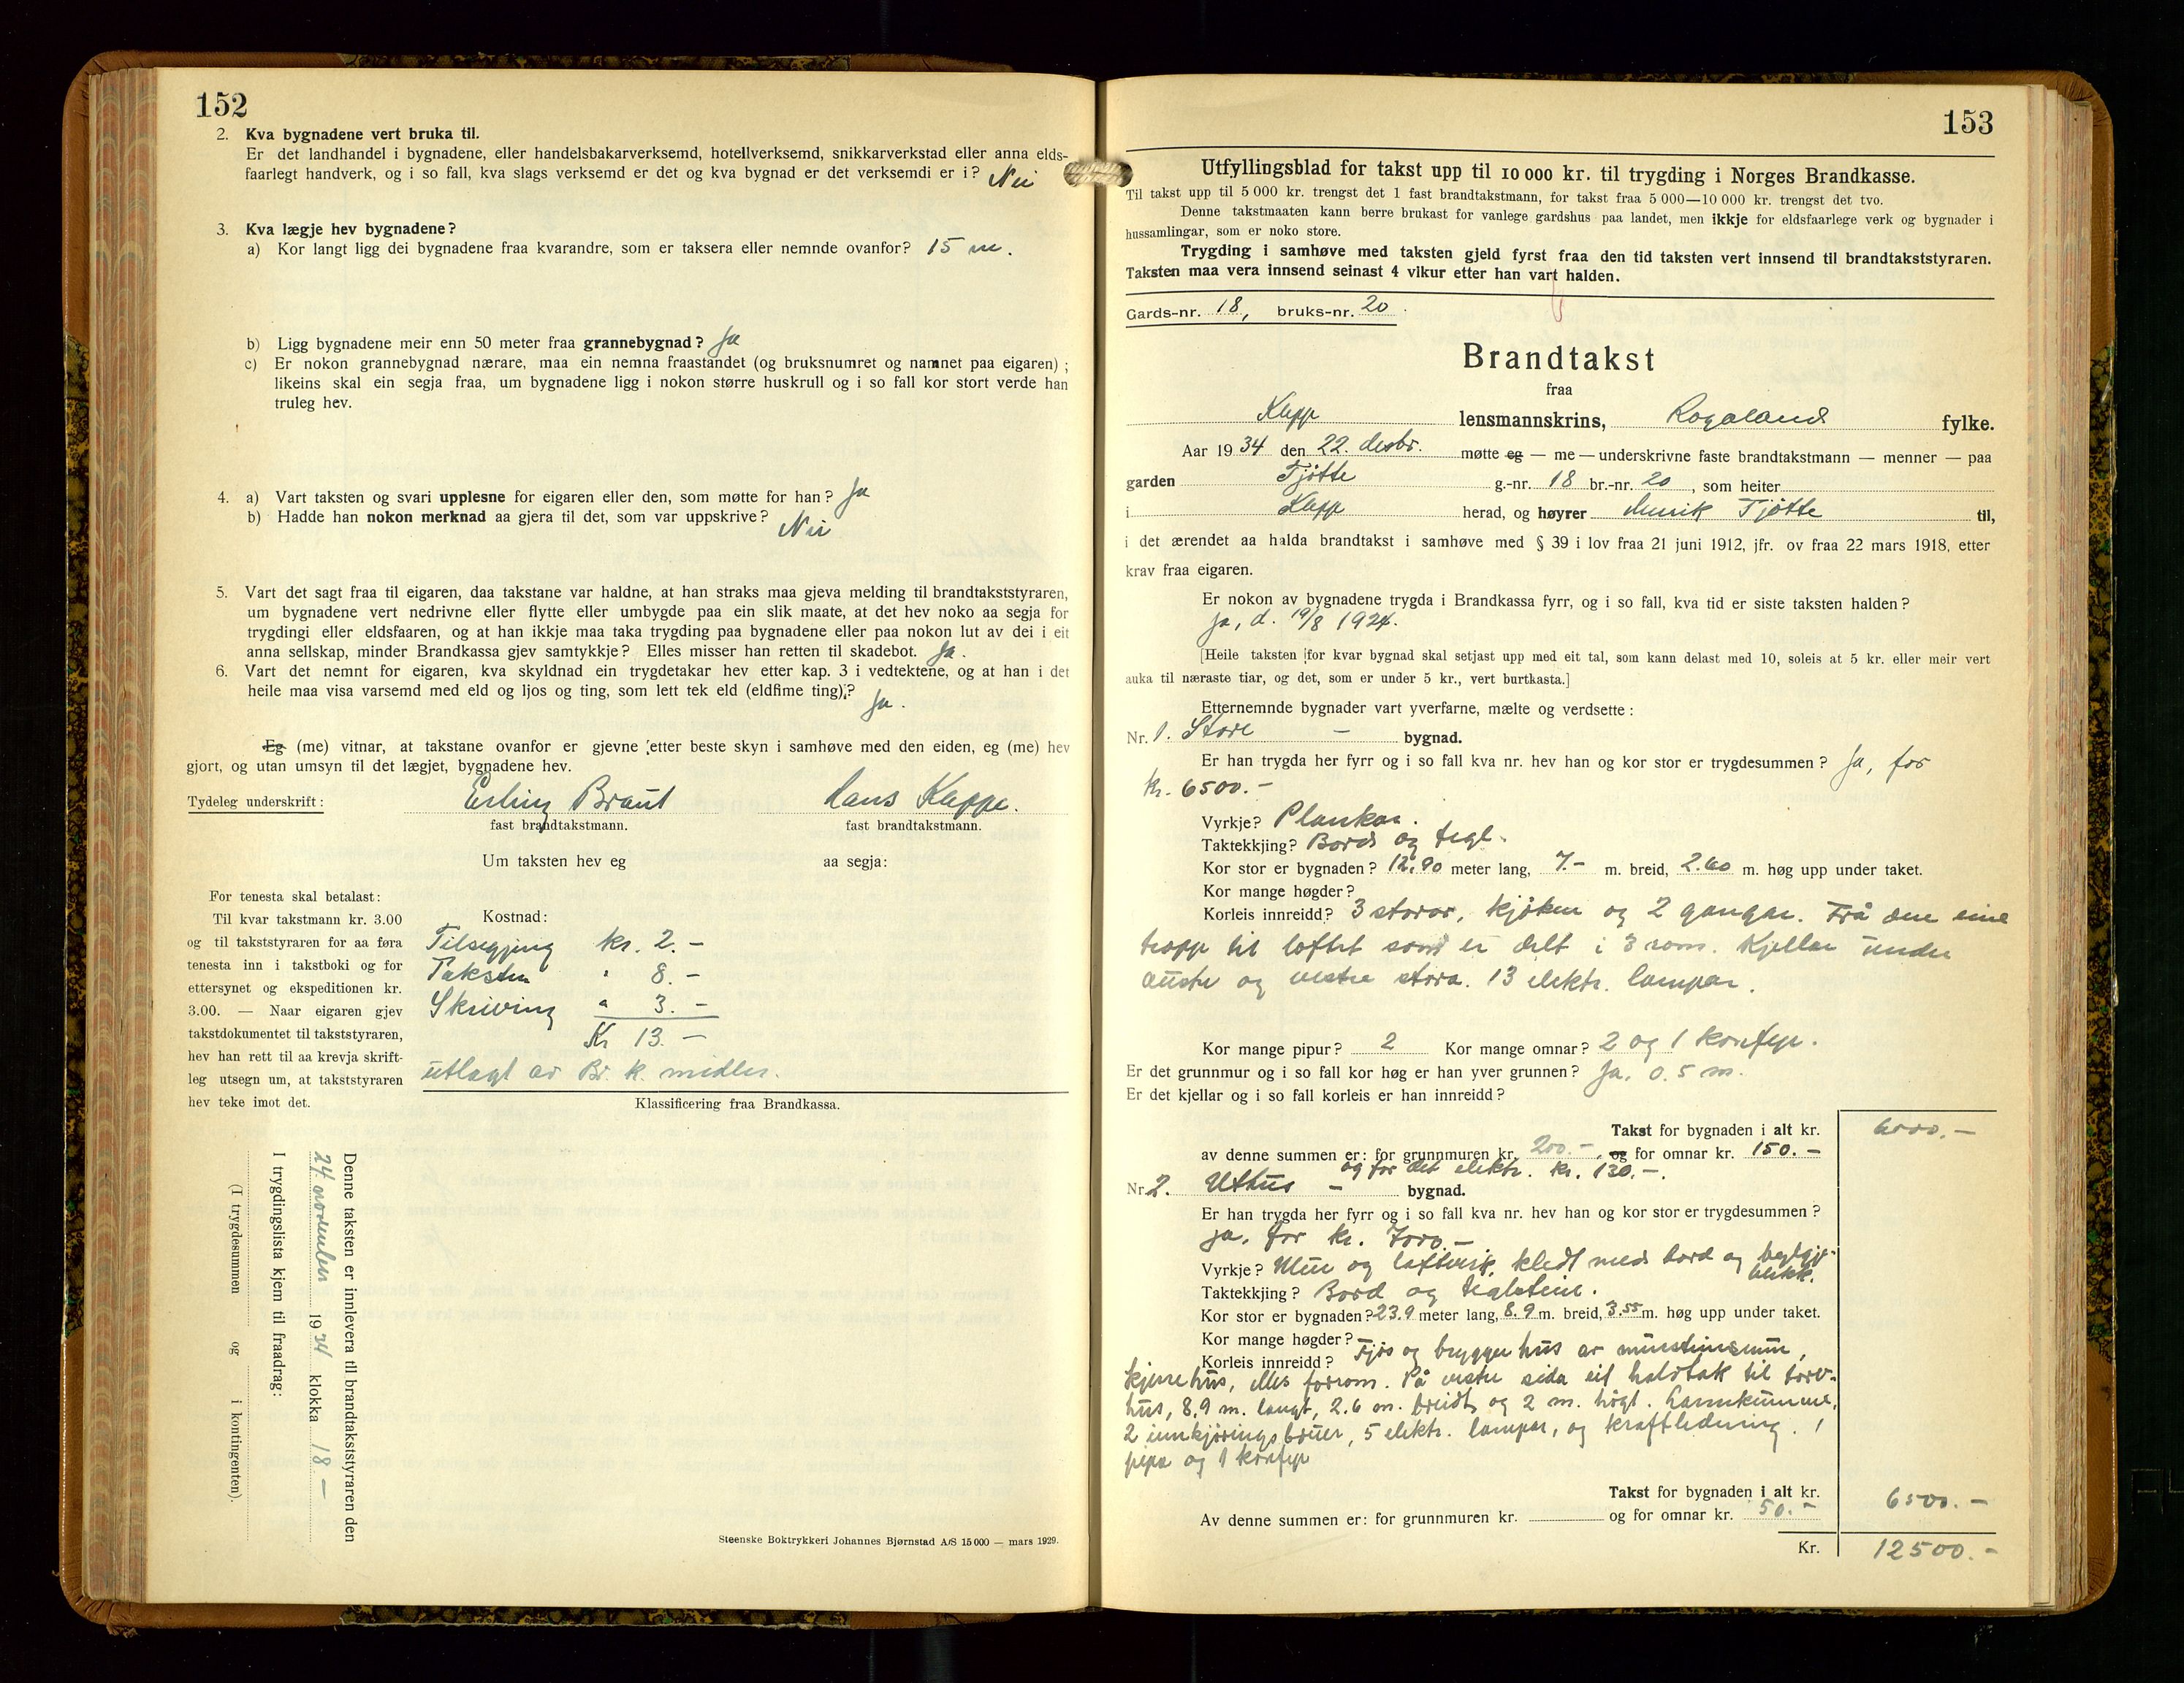 152
2. Kva bygnadene vert bruka til.
Er det landhandel i bygnadene, eller handelsbakarverksemd, hotellverksemd, snikkarverkstad eller anna elds-
faarlegt handverk, og i so fall, kva slags verksemd er det og kva bygnad er det verksemdi er i? Nei
3. Kva lægje hev bygnadene?
a) Kor langt ligg dei bygnadene fraa kvarandre, som er taksera eller nemnde ovanfor? 15 m.
b) Ligg bygnadene meir enn 50 meter fraa grannebygnad? Ja
c) Er nokon grannebygnad nærare, maa ein nemna fraastandet (og bruksnumret og namnet paa eigaren);
likeins skal ein segja fraa, um bygnadene ligg i nokon større huskrull og i so fall kor stort verde han
truleg hev.
4. a) Vart taksten og svari upplesne for eigaren eller den, som møtte for han? Ja
b) Hadde han nokon merknad aa gjera til det, som var uppskrive? Nei
5. Vart det sagt fraa til eigaren, daa takstane var haldne, at han straks maa gjeva melding til brandtakststyraren,
um bygnadene vert nedrivne eller flytte eller umbygde paa ein slik maate, at det hev noko aa segja for
trygdingi eller eldsfaaren, og at han ikkje maa taka trygding paa bygnadene eller paa nokon lut av dei i eit
anna sellskap, minder Brandkassa gjev samtykkje? Elles misser han retten til skadebot. Ja.
6. Vart det nemnt for eigaren, kva skyldnad ein trygdetakar hev etter kap. 3 i vedtektene, og at han i det
heile maa visa varsemd med eld og ljos og ting, som lett tek eld (eldfime ting)? Ja.
Eg (me) vitnar, at takstane ovanfor er gjevne etter beste skyn i samhøve med den eiden, eg (me) hev
gjort, og utan umsyn til det lægjet, bygnadene hev.
Tydeleg underskrift: Erling Braut Hans Kleppe.
fast brandtakstmann. fast brandtakstmann.
Um taksten hev eg aa segja:
For tenesta skal betalast:
Til kvar takstmann kr. 3.00
og til takststyraren for aa føra
tenesta inn i takstboki og for
ettersynet og ekspeditionen kr.
3.00. — Naar eigaren gjev
takstdokumentet til takststyraren,
hev han rett til aa krevja skrift-
leg utsegn um, at takststyraren
hev teke imot det.
Kostnad:
Tilsegjing kr. 2.-
Taksten " 8.-
Skriving " 3.-
Kr 13.-
utlagt av Br. k. midler.
Klassificering fraa Brandkassa.
Denne taksten er innlevera til brandtakststyraren den
24. november 1934 klokka 18.-
I trygdingslista kjem til fraadrag:
(I trygdesummen og i kontingenten).
Steenske Boktrykkeri Johannes Bjørnstad A/S 15 000 — mars 1929.
153
Utfyllingsblad for takst upp til 10 000 kr. til trygding i Norges Brandkasse.
Til takst upp til 5 000 kr. trengst det 1 fast brandtakstmann, for takst fraa 5 000—10 000 kr. trengst det tvo.
Denne takstmaaten kann berre brukast for vanlege gardshus paa landet, men ikkje for eldsfaarlege verk og bygnader i
hussamlingar, som er noko store.
Trygding i samhøve med taksten gjeld fyrst fraa den tid taksten vert innsend til brandtakststyraren.
Taksten maa vera innsend seinast 4 vikur etter han vart halden.
Gards-nr. 18, bruks-nr. 20.
Brandtakst
fraa
Klepp lensmannskrins, Rogaland fylke.
Aar 1934 den 22. desbr. møtte eg — me — underskrivne faste brandtakstmann — menner — paa
garden Tjøtte g.-nr. 18 br.-nr. 20, som heiter
i Klepp herad, og høyrer Enrik Tjøtte til,
i det ærendet aa halda brandtakst i samhøve med § 39 i lov fraa 21 juni 1912, jfr. ov fraa 22 mars 1918, etter
krav fraa eigaren.
Er nokon av bygnadene trygda i Brandkassa fyrr, og i so fall, kva tid er siste taksten halden?
Ja, d. 19/8 1924.
[Heile taksten for kvar bygnad skal setjast upp med eit tal, som kann delast med 10, soleis at 5 kr. eller meir vert
auka til næraste tiar, og det, som er under 5 kr., vert burtkasta.]
Etternemnde bygnader vart yverfarne, mælte og verdsette:
Nr. 1. Store - bygnad.
Er han trygda her fyrr og i so fall kva nr. hev han og kor stor er trygdesummen? Ja, for
kr. 6500.-
Vyrkje? Plankar.
Taktekkjing? Bord og tegl.
Kor stor er bygnaden? 12.90 meter lang, 7.- m. breid, 2.60 m. høg upp under taket.
Kor mange høgder?
Korleis innreidd? 3 stovor, kjøken og 2 gangar. Frå den eine
tropp til loftet som er delt i 3 rom. Kjellar under
austre og vestre stova. 13 elektr. lampar.
Kor mange pipur? 2 Kor mange omnar? 2 og 1 komfyr.
Er det grunnmur og i so fall kor høg er han yver grunnen? Ja, 0.5 m.
Er det kjellar og i so fall korleis er han innreidd?
Takst for bygnaden i alt kr. 6000.-
av denne summen er: for grunnmuren kr. 200.-, og for omnar kr. 150.-
og for det elektr. kr. 130.-.
Nr. 2. Uthus - bygnad.
Er han trygda her fyrr og i so fall kva nr. hev han og kor stor er trygdesummen?
ja, for kr. 7000.-
Vyrkje? Mur og loftverk, kledt med bord og
blikk.
Taktekkjing? Bord og teglstein.
Kor stor er bygnaden? 23.9 meter lang, 8.9 m. breid, 3.55 m. høg upp under taket.
Kor mange høgder?
Korleis innreidd? Fjøs og bryggerhus av murstinsmur,
kjerrehus, elles forrom. På vestre sida eit halvtak til torv-
hus, 8.9 m. langt, 2.6 m. breidt og 2 m. høgt. Landkumme,
2 innkjøringsbruer, 5 elektr. lampar, og kraftledning. 1
pipa og 1 komfyr
Takst for bygnaden i alt kr. 6500.-
Av denne summen er: for grunnmuren kr. og for omnar kr. 50.-
Kr. 12500.-